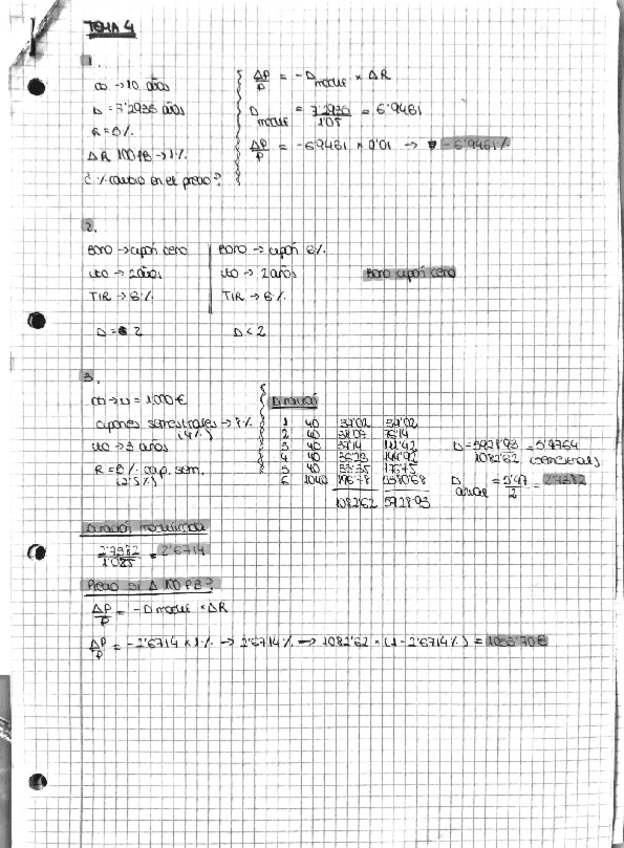 TEMA 4
1.
→ 10 años
D = 7'2936 años
ΔR 100 PB → 1%
¿% cambio en el precio?
ΔP/P = -D modif × ΔR
D modif = 7'2936/1'05 = 6'9461
ΔP/P = -6'9461 × 0'01 → -6'9461%
2.
Bono → cupón cero
vto → 2 años
TIR → 6%
D = 2
Bono → cupón 6%
vto → 2 años
TIR → 6%
D < 2
Bono cupón cero
3.
→ N = 1000€
cupones semestrales → 8%
(4%)
vto → 3 años
cap. sem.
(2'5%)
Duración
1 40 39'02 39'02
2 40 38'07 76'14
3 40 37'14 111'42
4 40 36'23 144'92
5 40 35'35 176'75
6 1040
1082'62 5928'93
D = 5928'93/1082'62 = 5'4764
(semestral)
D anual = 5'47/2 = 2'7382
Duración modificada
2'7382/1'025 = 2'6714
Precio si Δ 100 PB?
ΔP/P = -D modif × ΔR
ΔP/P = -2'6714 × 1% → 2'6714% → 1082'62 × (1 - 2'6714%) = 1053'70€